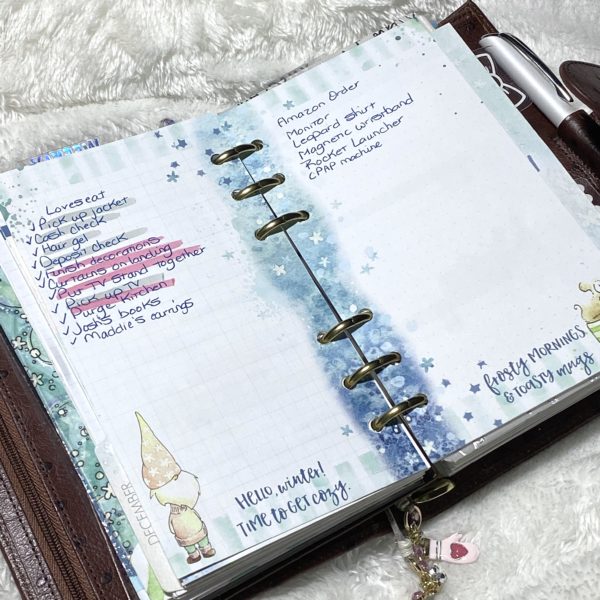 Loveseat
✓ Pick up jacket
✓ Cash check
✓ Hair gel
✓ Deposit check
✓ Finish decorations
✓ Curtains on landing
✓ Put TV stand together
✓ Pick up TV
✓ Purge Kitchen
✓ Josh's books
✓ Maddie's earnings
DECEMBER
HELLO, winter!
TIME to GET COZY.
Amazon Order
Monitor
Leopard shirt
Magnetic wristband
Rocket Launcher
CPAP machine
frosty MORNINGS
& TOASTY mugs